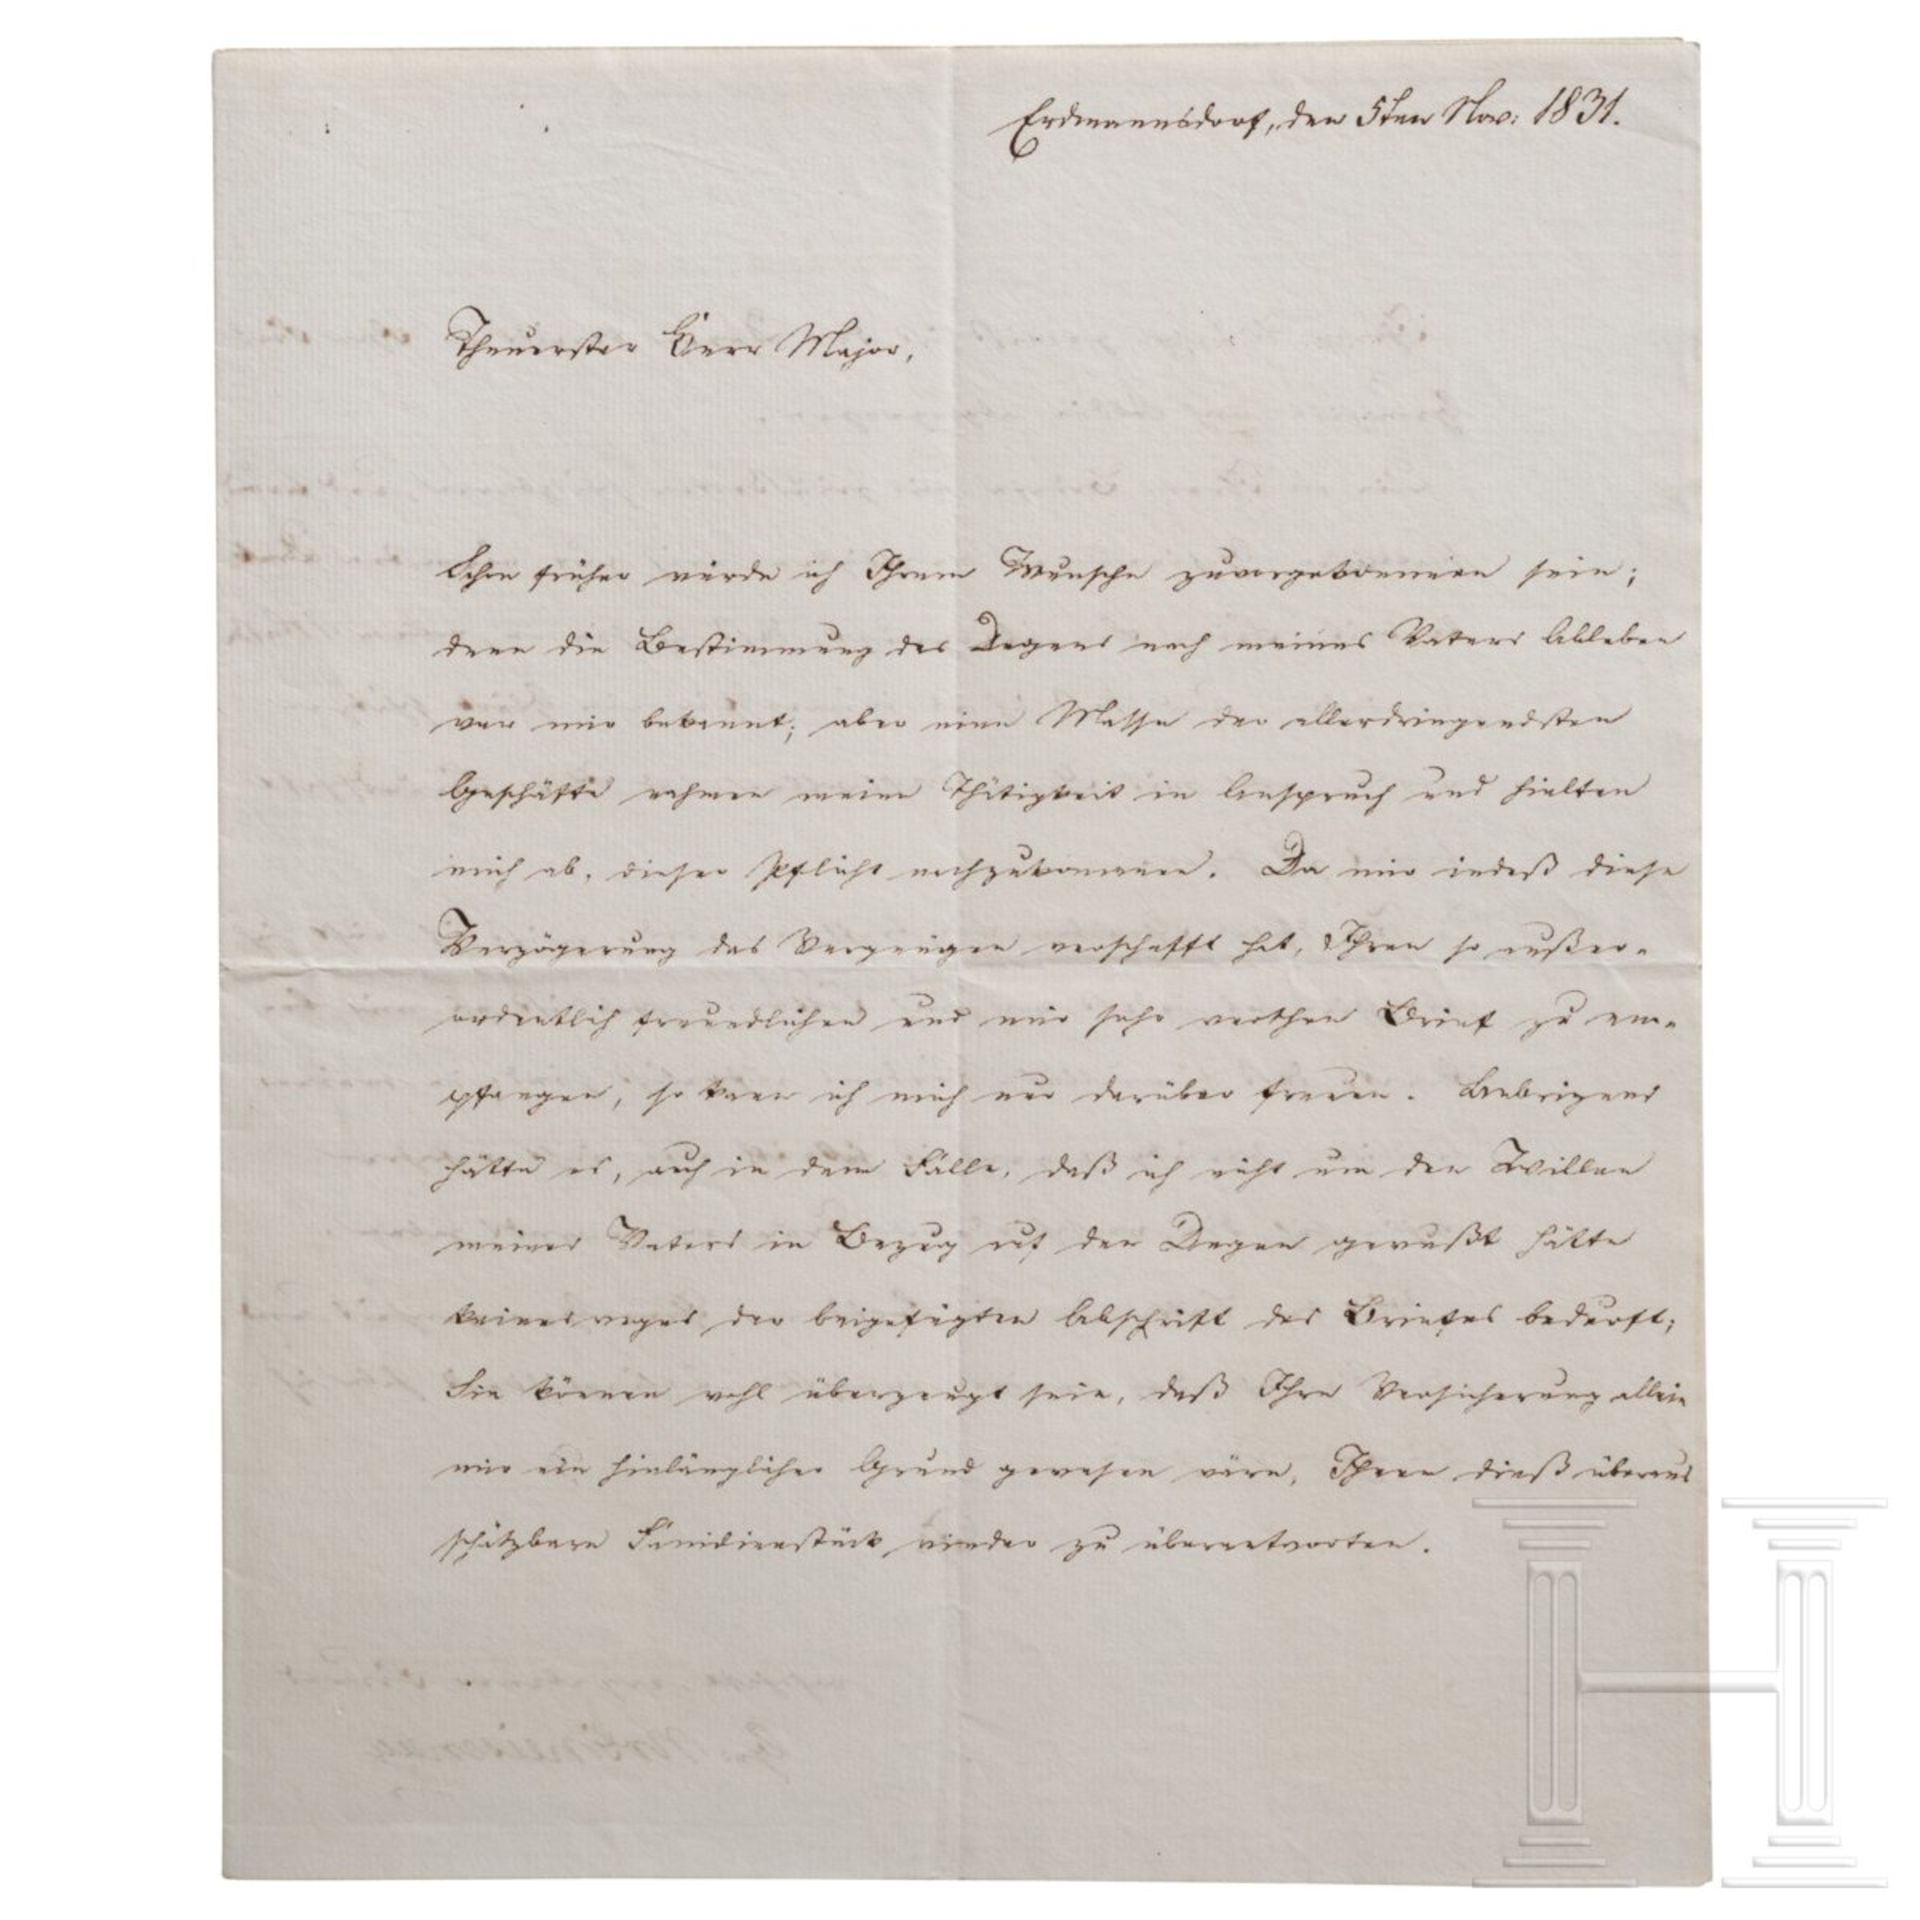 Erdmannsdorf, den 5ten Nov: 1831.
Theuerster Herr Major,
Schon früher würde ich Ihrem Wunsche zuvorgekommen sein;
denn die Bestimmung des Degens nach meines Vaters Ableben
war mir bekannt; aber eine Masse der allerdringendsten
Geschäfte nahmen meine Thätigkeit in Anspruch und hielten
mich ab, dieser Pflicht nachzukommen. Da mir indeß diese
Verzögerung das Vergnügen verschafft hat, Ihren so außer-
ordentlich freundlichen und mir sehr werthen Brief zu em-
pfangen, so kann ich mich nur darüber freuen. Uebrigens
hätte es, auch in dem Falle, daß ich nicht um den Willen
meines Vaters in Bezug auf den Degen gewußt hätte
keinesweges der beigefügten Abschrift des Briefes bedurft;
Sie können wohl überzeugt sein, daß Ihre Versicherung allein
mir ein hinlänglicher Grund gewesen wäre, Ihnen dieß überaus
schätzbare Familienstück wieder zu überantworten.